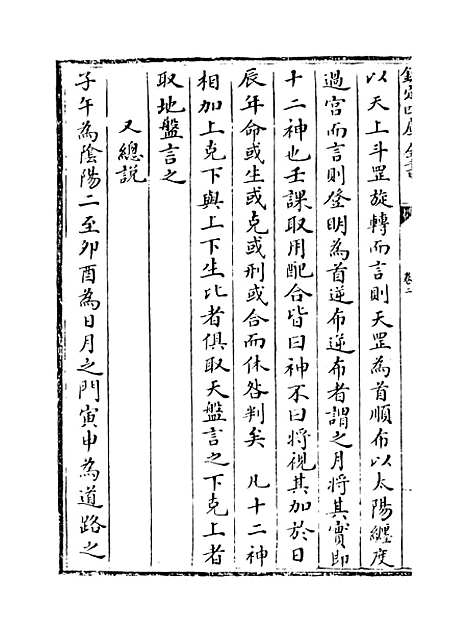 欽定四庫全書
卷二
以天上斗罡旋轉而言則天罡為首順布以太陽纏度
過宮而言則登明為首逆布逆布者謂之月將其實即
十二神也壬課取用配合皆曰神不曰將視其加於日
辰年命或生或克或刑或合而休咎判矣 凡十二神
相加上克下與上下生比者俱取天盤言之下克上者
取地盤言之
又總説
子午為陰陽二至卯酉為日月之門寅申為道路之